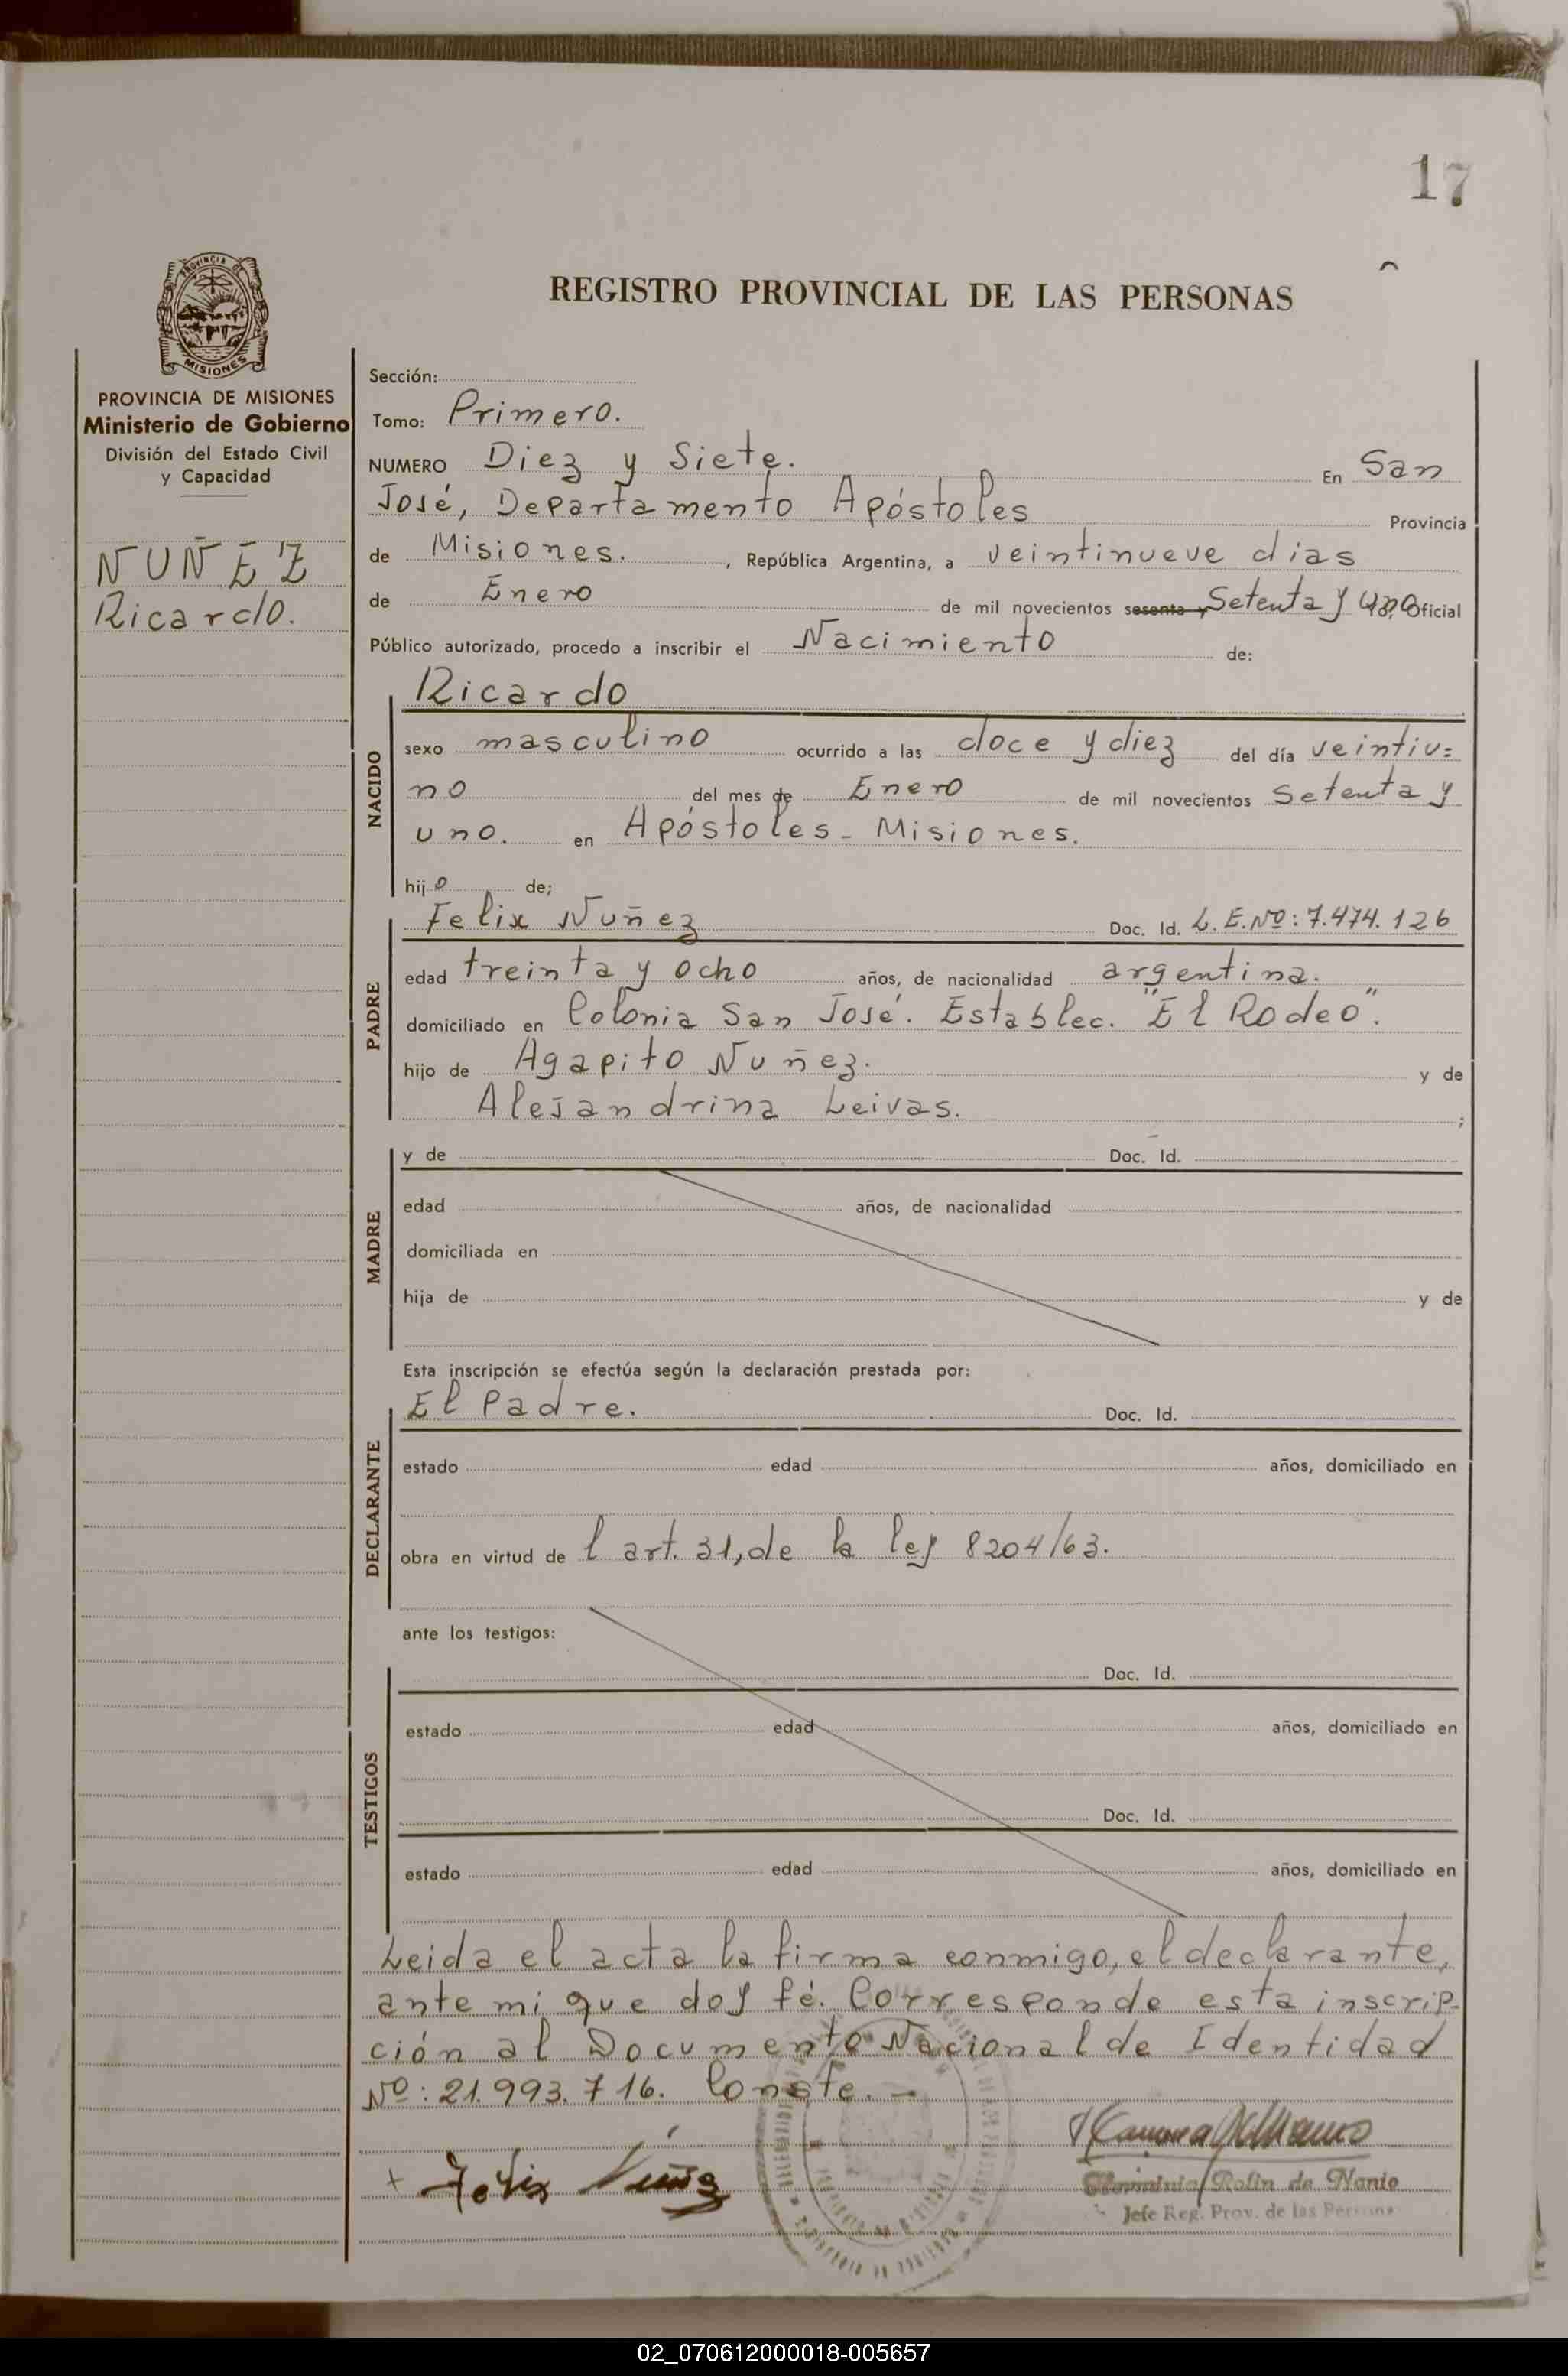 17
REGISTRO PROVINCIAL DE LAS PERSONAS
PROVINCIA DE
MISIONES
PROVINCIA DE MISIONES
Ministerio de Gobierno
División del Estado Civil
y Capacidad
NUÑEZ
Ricardo.
Sección:
Tomo: Primero.
NUMERO Diez y Siete. En San
José, Departamento Apóstoles Provincia
de Misiones. , República Argentina, a veintinueve dias
de Enero de mil novecientos sesenta y Setenta y uno, Oficial
Público autorizado, procedo a inscribir el Nacimiento de:
NACIDO
Ricardo
sexo masculino ocurrido a las doce y diez del día veintiu=
no del mes de Enero de mil novecientos setenta y
uno. en Apóstoles - Misiones.
hijo de;
PADRE
Felix Nuñez Doc. Id. L.E.Nº: 7.474.126
edad treinta y ocho años, de nacionalidad argentina.
domiciliado en Colonia San José. Establec. "El Rodeo".
hijo de Agapito Nuñez. y de
Alejandrina Leivas. ;
MADRE
y de Doc. Id.
edad años, de nacionalidad
domiciliada en
hija de y de
Esta inscripción se efectúa según la declaración prestada por:
DECLARANTE
El Padre. Doc. Id.
estado edad años, domiciliado en
obra en virtud de l art. 31, de la ley 8204/63.
ante los testigos:
TESTIGOS
Doc. Id.
estado edad años, domiciliado en
Doc. Id.
estado edad años, domiciliado en
Leida el acta la firma conmigo, el declarante,
ante mi que doy fé. Corresponde esta inscrip-
ción al Documento Nacional de Identidad
Nº: 21.993.716. Conste. -
+ Felix Nuñez
Rolin de Nanio
Jefe Reg. Prov. de las Persons
02_070612000018-005657